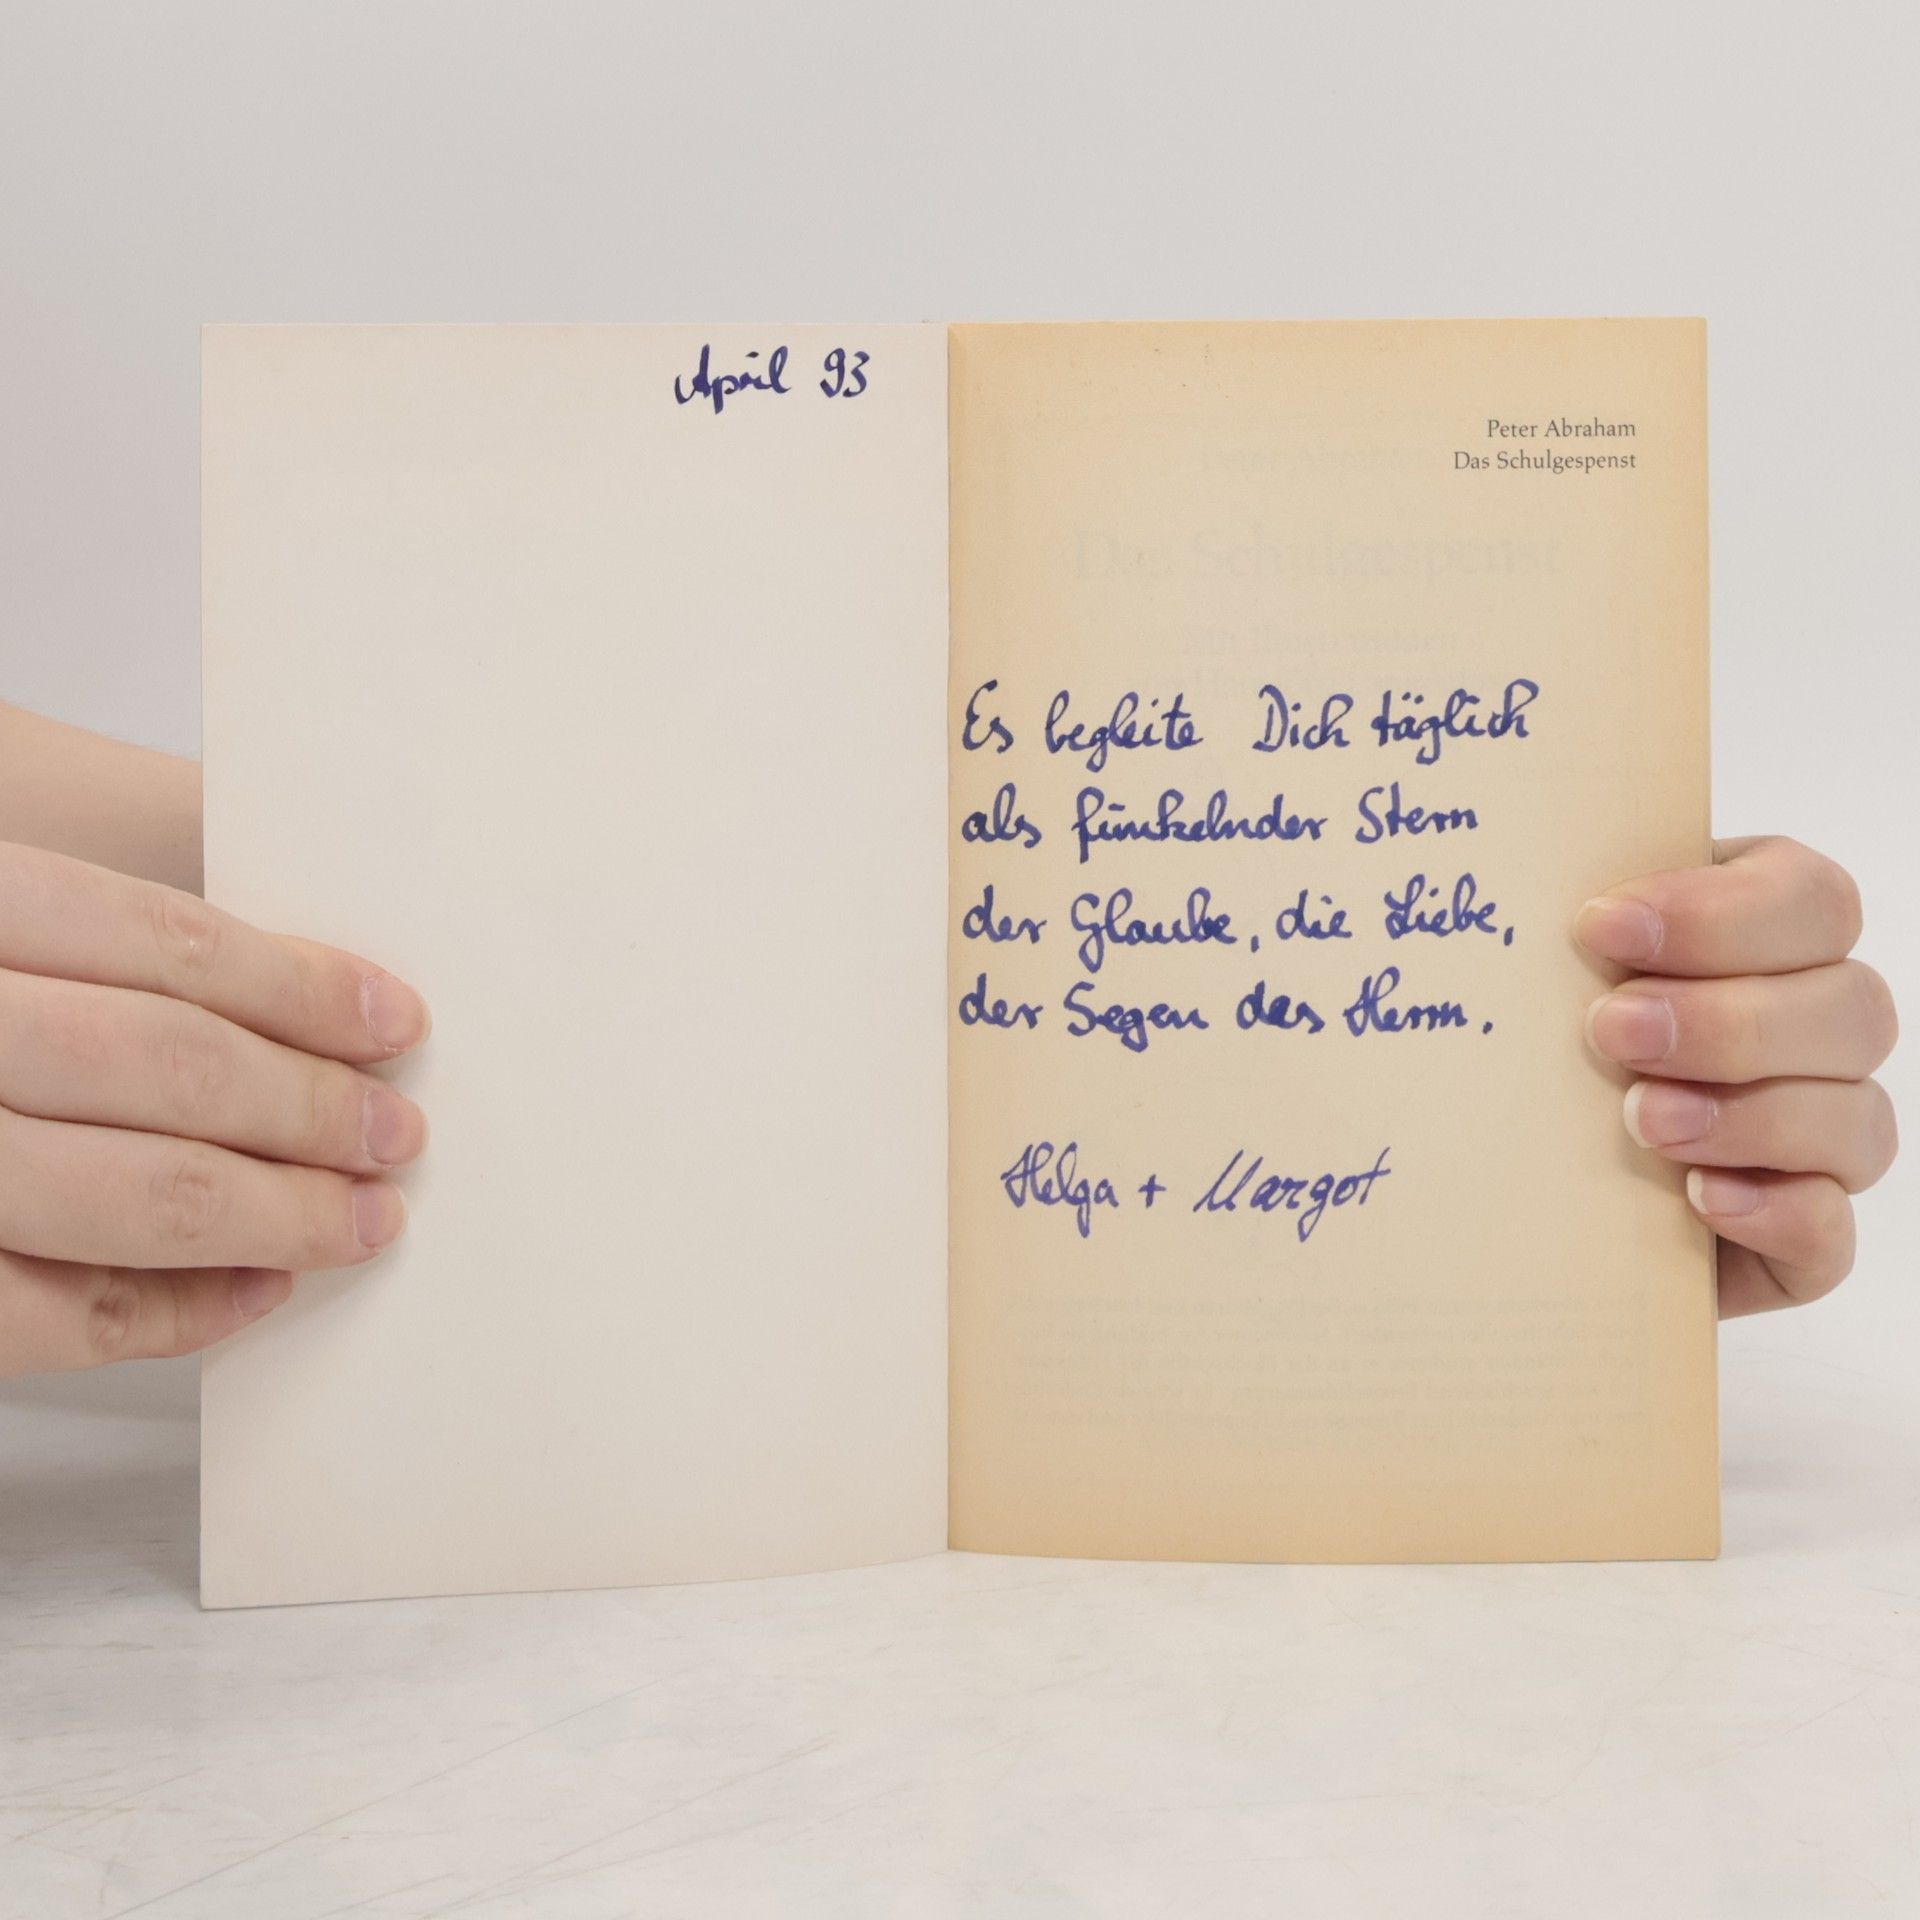 April 93
Peter Abraham
Das Schulgespenst
Das Schulgespenst
Mit Illustrationen
Es begleite Dich täglich
als funkelnder Stern
der Glaube, die Liebe,
der Segen des Herrn.
Helga + Margot